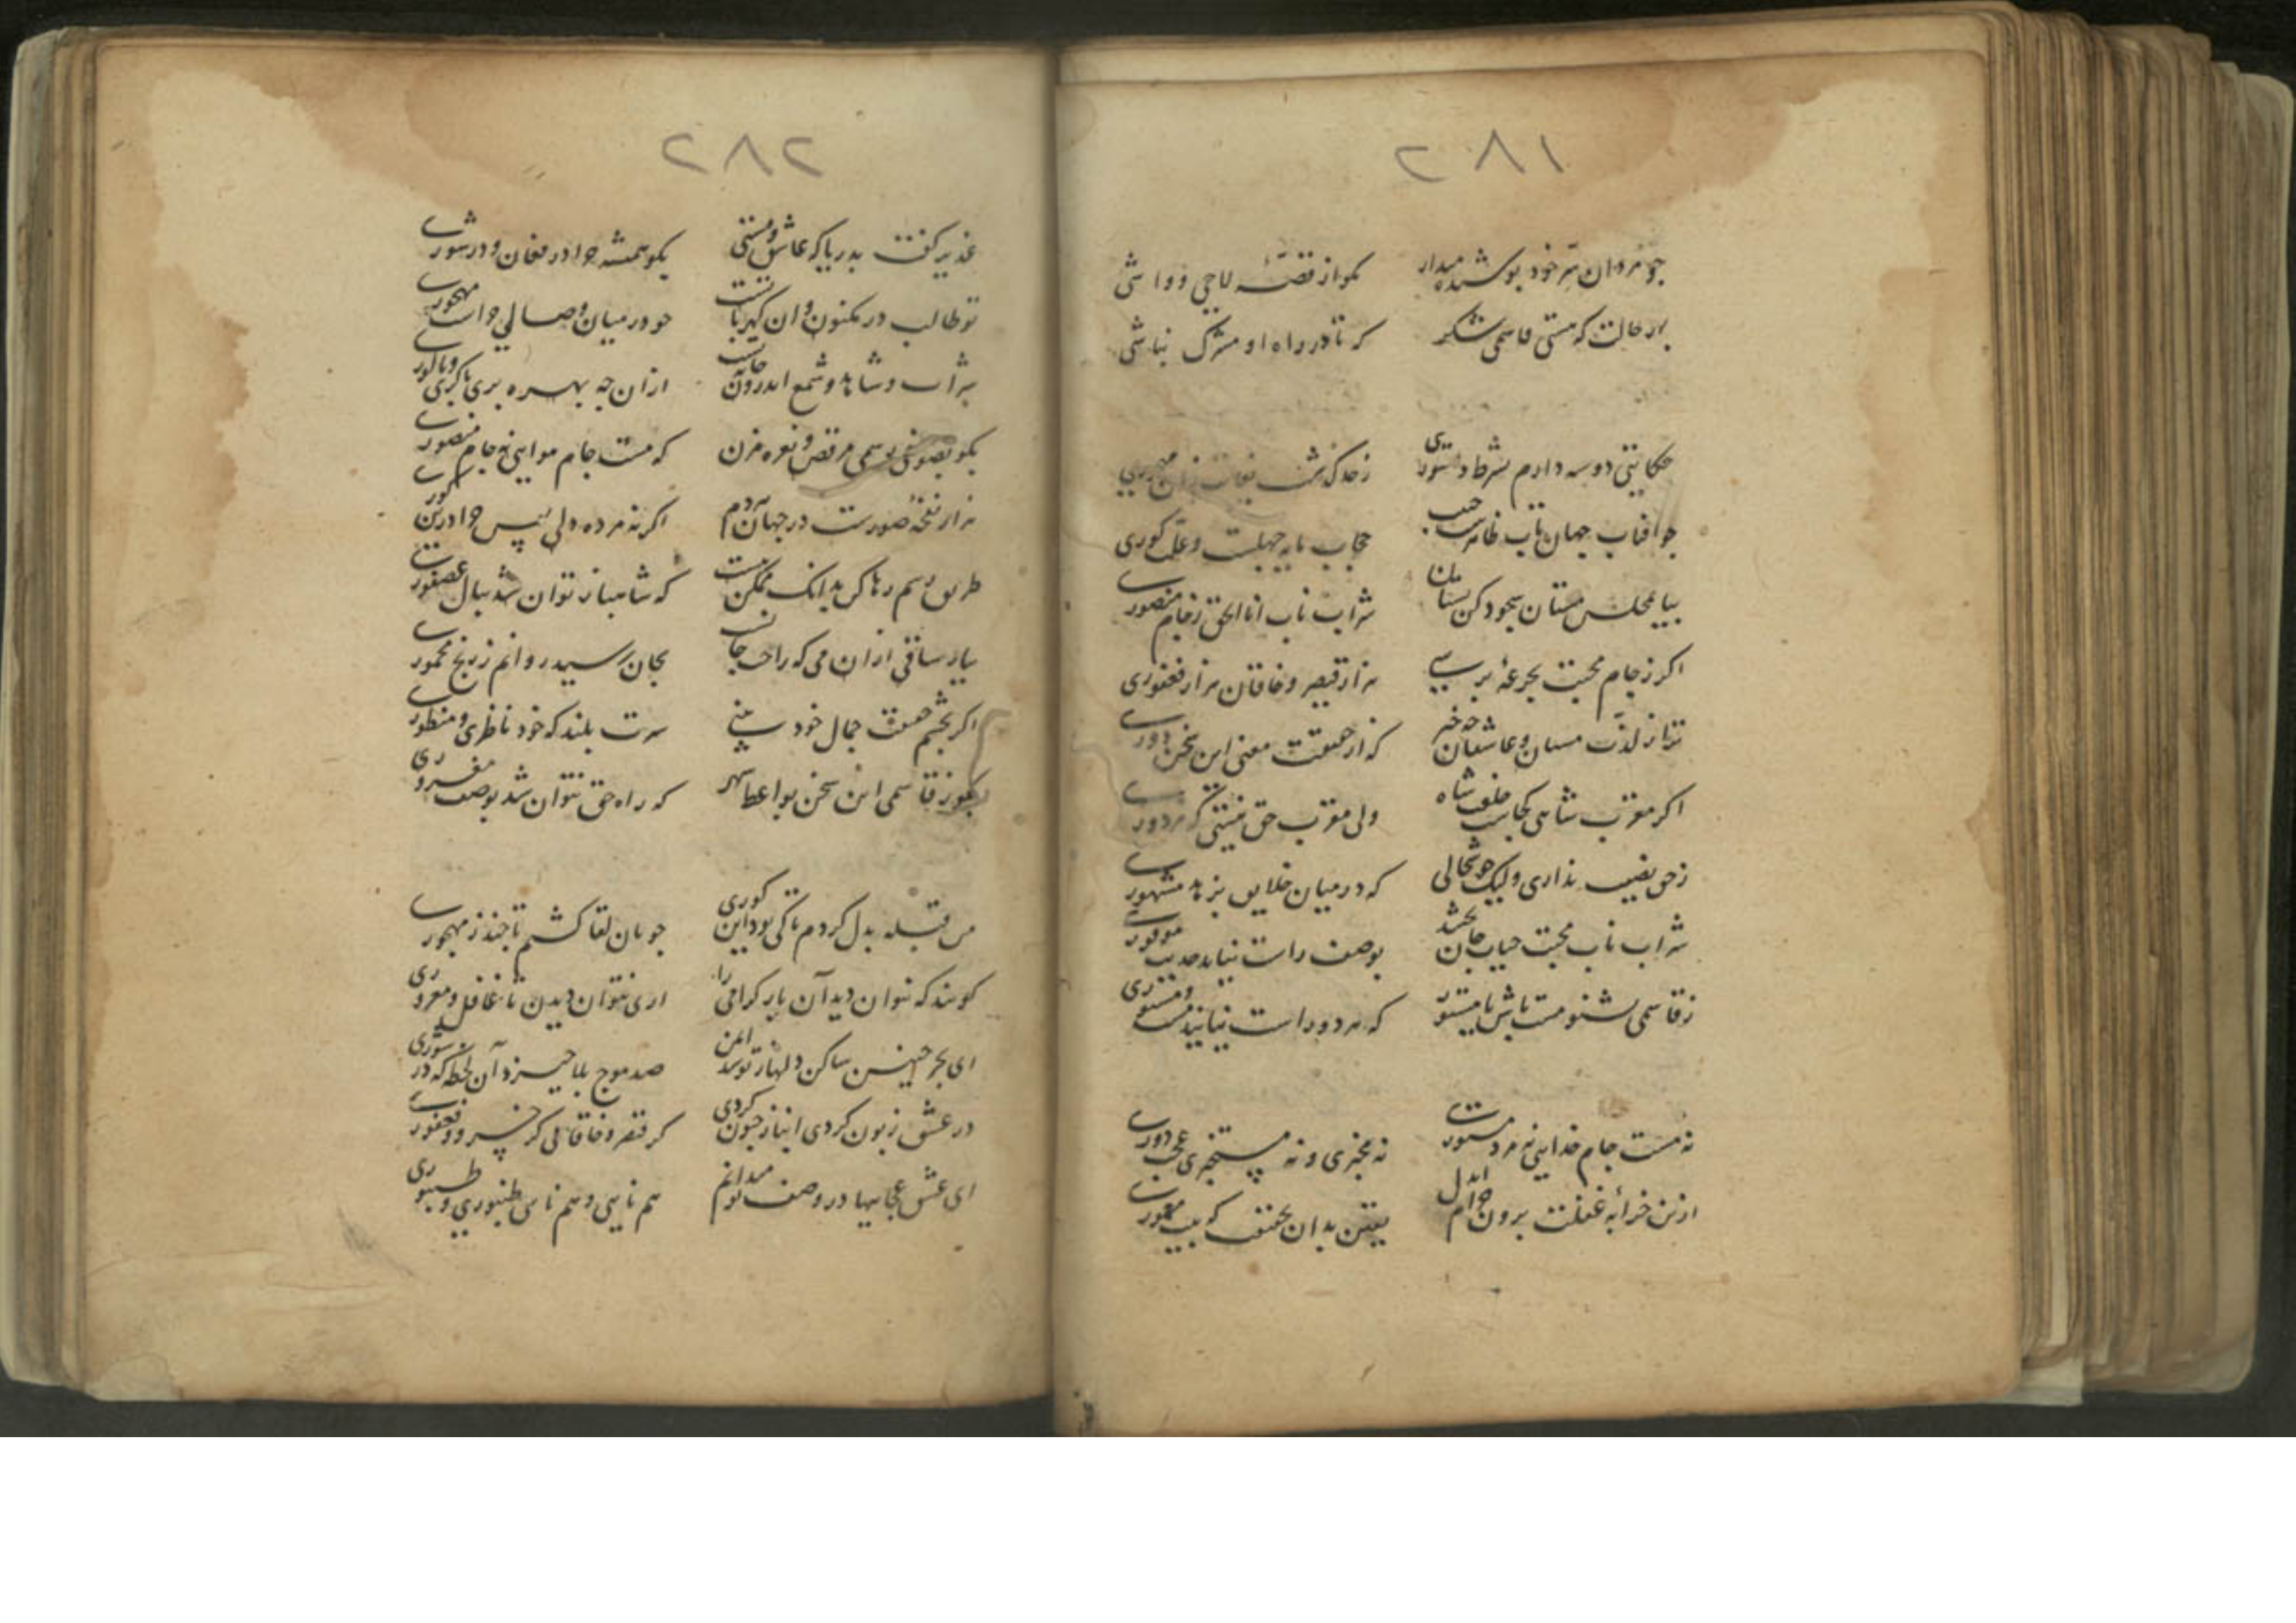 ۲۸۱
چو مردان سر خود پوشیده میدار مکو از قصهٔ لاچی و واشی
بهر حالت که هستی قاسمی شکر که تا در راه او مشرک نباشی
حکایتی دو سه دارم بشرط دستوری زحد گذشت بغایت زمان مهجوری
چو افتاب جهان تاب ظاهرست حبیب حجاب مایه جهلست و علت کوری
بیا بمجلس مستان سجود کن بستان شراب ناب انا الحق ز جام منصوری
اگر ز جام محبت بجرعهٔ برسی هزار قیصر و خاقان هزار فغفوری
ترا ز لذت مستان و عاشقان چه خبر که از حقیقت معنی این سخن دوری
اگر مقرب شاهی بجانب خلق شاه ولی مقرب حق نیستی که مزدوری
ز حق نصیب نداری ولیک خوشحالی که در میان خلایق بزهد مشهوری
شراب ناب محبت حیات جان بخشد بوصف راست نیاید حدیث موفوری
ز قاسمی بشنو مست باش یا مستور که هر دو راست نیایند مست و مستوری
نه مست جام خدایی نه مرد مستوری نه مخبری و نه مستخبری عجب دوری
ازین خرابهٔ غفلت برون خرام ای دل یقین بدان بحقیقت که بیت معموری
۲۸۲
غدیر گفت بدریا که عاشق و مستی بکو همیشه چرا در فغان و در شوری
تو طالب در مکنون و ان گهر با تست چو در میان وصالی چراست مهجوری
شراب و شاهد و شمع اندرون خانه تست ازان چه بهره بری با کری و با کوری
بکو بصوفی رسمی مرقص و نعره مزن که مست جام هوایی نه جام منصوری
هزار نفخهٔ صورست در جهان هر دم اگر نه مرده دلی پس چرا درین گوری
طریق رسم رها کن بدانک ممکن نیست که شاهباز توان شد ببال عصفوری
بیار ساقی ازان می که راحت جانست بجان رسید روانم ز رنج مخموری
اگر بچشم حقیقت جمال خود بینی سرت بلند که خود ناظری و منظوری
بگو ز قاسمی این سخن بواعظ شهر که راه حق نتوان شد بوصف مغروری
من قبله بدل کردم تا کی بود این کوری جویان لقا گشتم تا چند ز مهجوری
گویند که نتوان دید آن یار گرامی را اری نتوان دیدن تا غافل و مغروری
ای بحر چنین ساکن دلها ز تو شد ایمن صد موج بلا خیزد آن لحظه که در شوری
در عشق زبون گردی انباز جنون گردی گر قیصر و خاقانی گر خسرو و فغفوری
ای عشق عجایبها در وصف تو میدانم هم نایی و هم ناس طنبوری و طنبوری